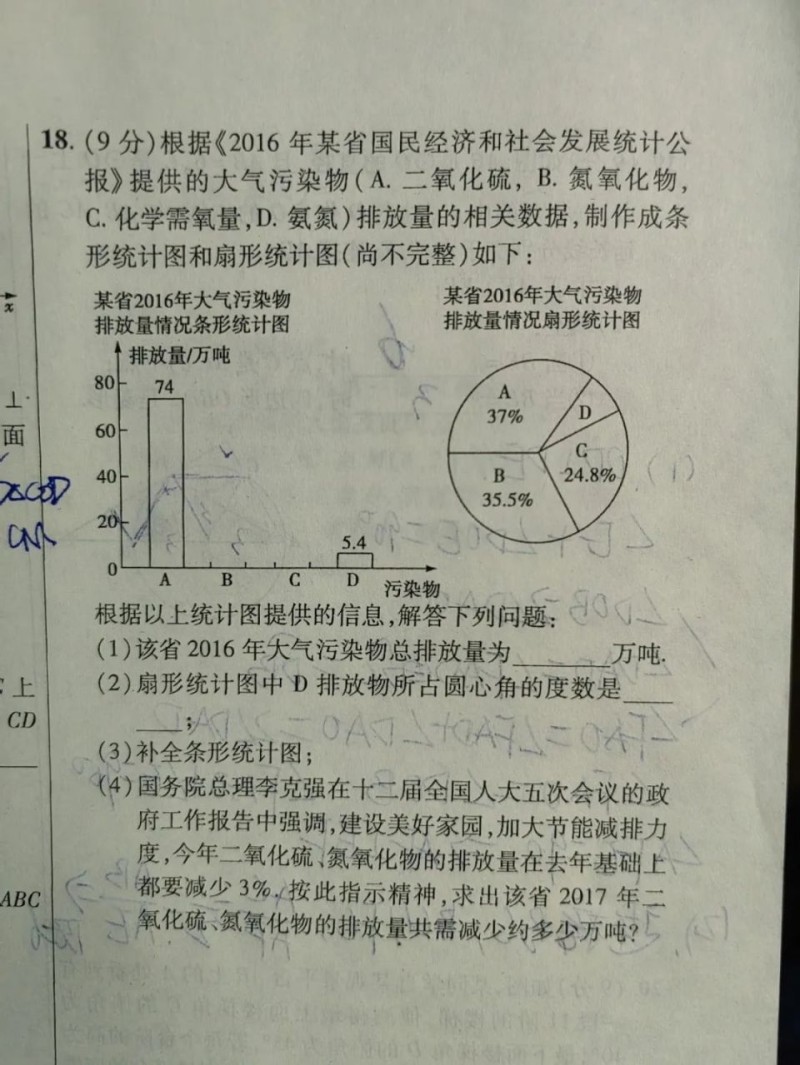 18. (9 分)根据《2016 年某省国民经济和社会发展统计公
报》提供的大气污染物(A. 二氧化硫, B. 氮氧化物,
C. 化学需氧量,D. 氨氮)排放量的相关数据,制作成条
形统计图和扇形统计图(尚不完整)如下:
某省2016年大气污染物
排放量情况条形统计图
排放量/万吨
80
60
40
20
0
74
5.4
A B C D
污染物
某省2016年大气污染物
排放量情况扇形统计图
A
37%
D
C
24.8%
B
35.5%
根据以上统计图提供的信息,解答下列问题:
(1)该省 2016 年大气污染物总排放量为________万吨.
(2)扇形统计图中 D 排放物所占圆心角的度数是____
____;
(3)补全条形统计图;
(4)国务院总理李克强在十二届全国人大五次会议的政
府工作报告中强调,建设美好家园,加大节能减排力
度,今年二氧化硫、氮氧化物的排放量在去年基础上
都要减少 3%. 按此指示精神,求出该省 2017 年二
氧化硫、氮氧化物的排放量共需减少约多少万吨?
x
⊥
面
上
CD
ABC